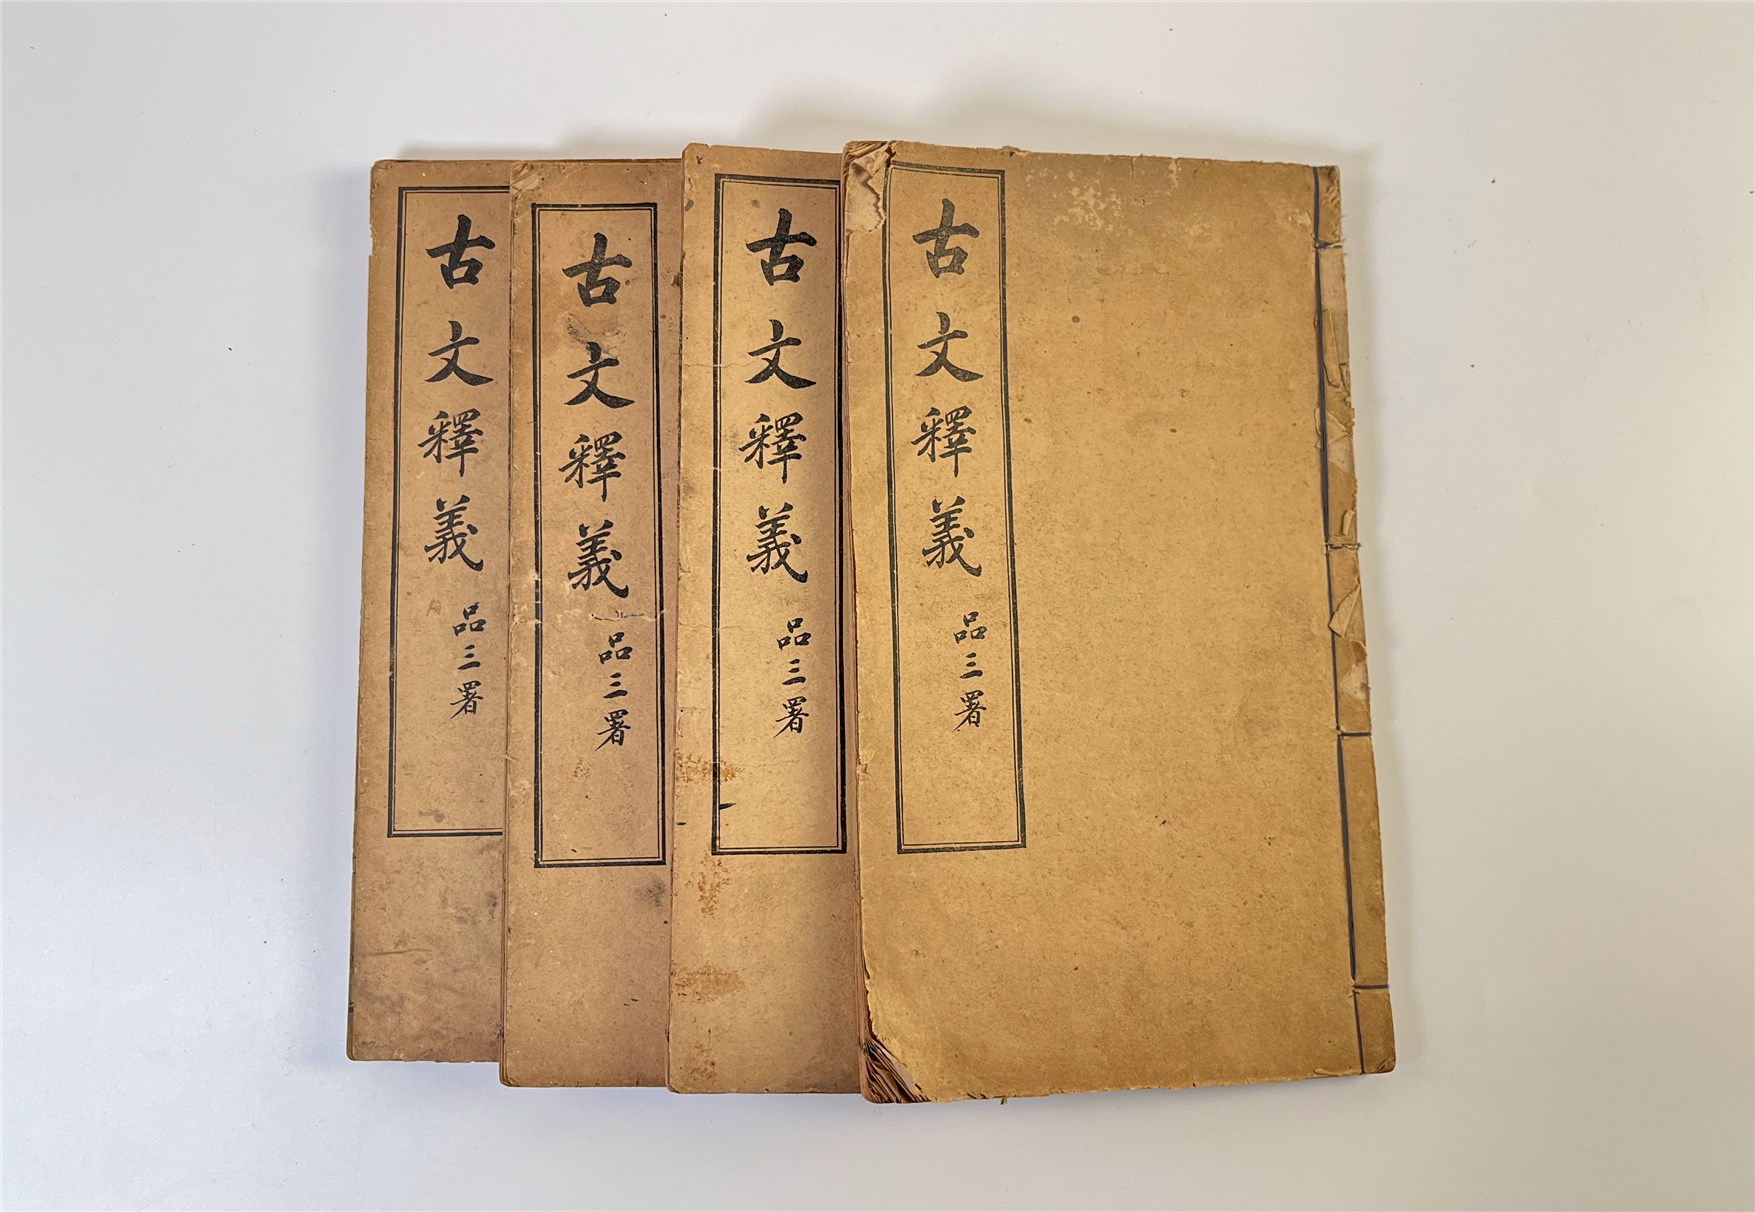 古文釋義
品三署
古文釋義
品三署
古文釋義
品三署
古文釋義
品三署